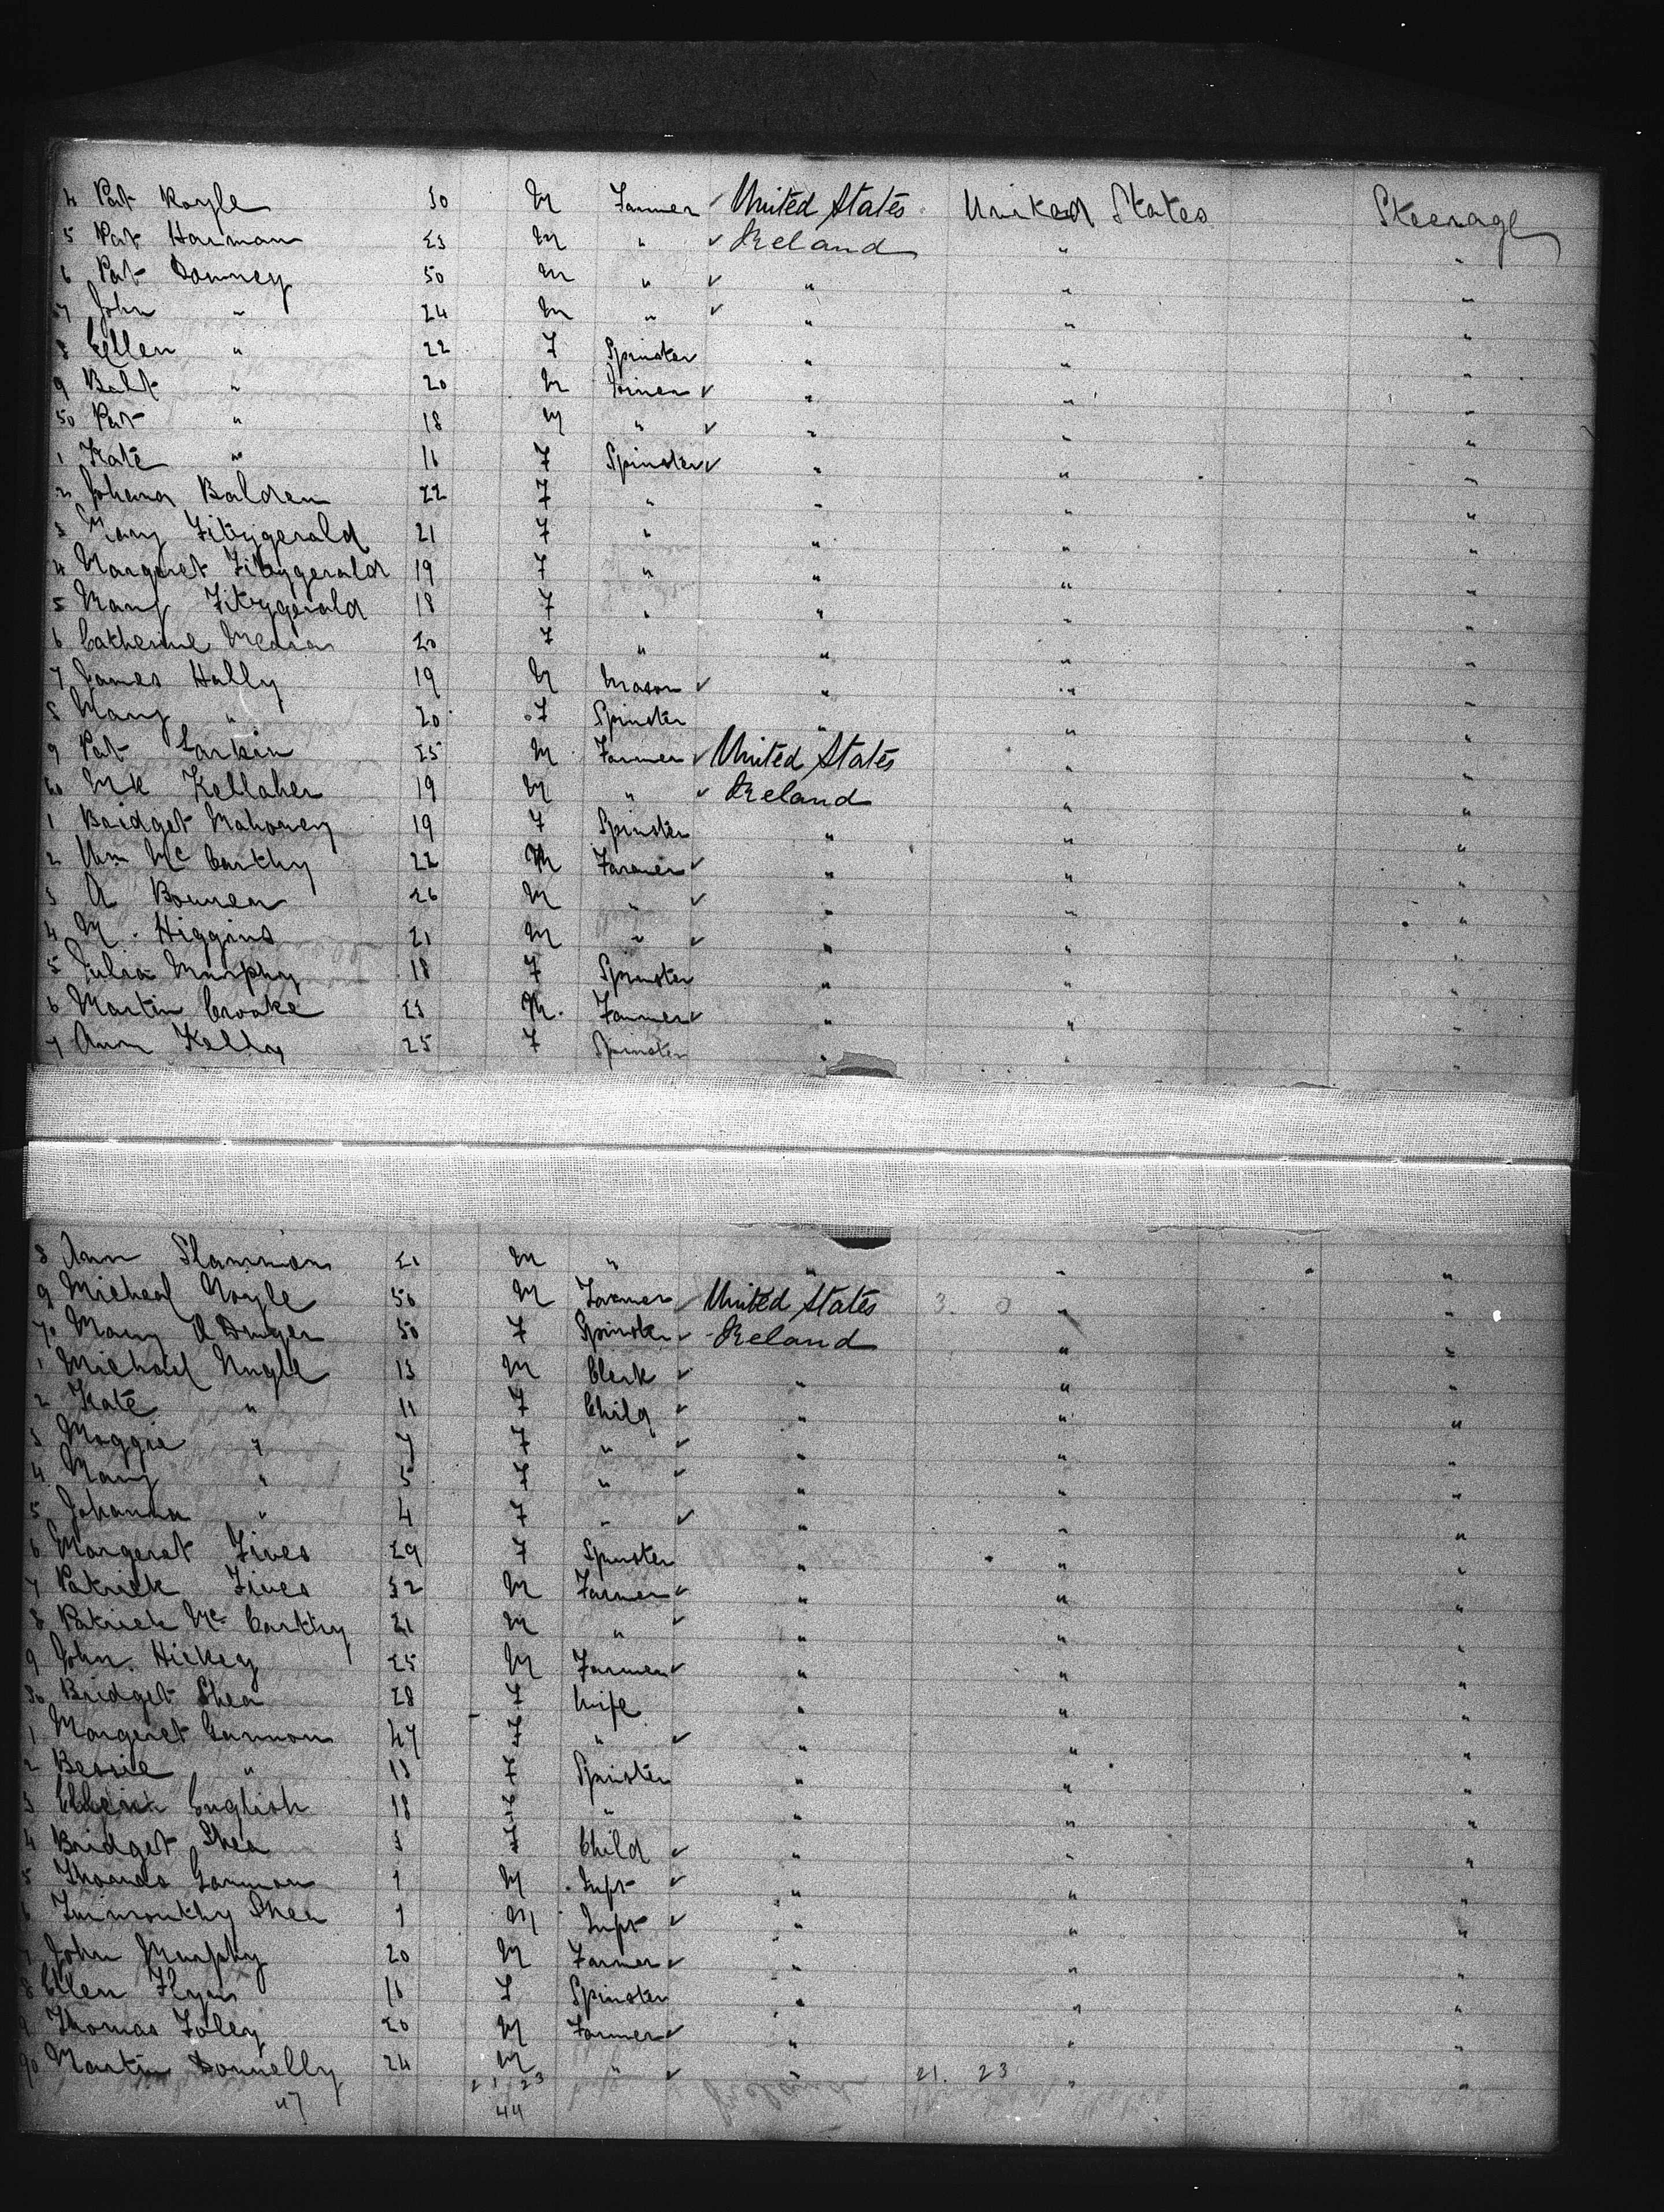 4 Pat Royle 30 M Farmer ✓ United States United States Steerage
5 Pat Harman 23 M " ✓ Ireland " "
6 Pat Downey 50 M " ✓ " " "
7 John " 24 M " ✓ " " "
8 Ellen " 22 F Spinster " " "
9 " 20 M Farmer ✓ " " "
50 Pat " 18 M " ✓ " " "
1 Kate " 16 F Spinster ✓ " " "
2 Johana Balden 22 F " " " "
3 Mary Fitzgerald 21 F " " " "
4 Margaret Fitzgerald 19 F " " " "
5 Mary Fitzgerald 18 F " " " "
6 Catherine 20 F " " " "
7 James Hally 19 M Mason ✓ " " "
8 Mary " 20 F Spinster " " "
9 Pat Larkin 25 M Farmer ✓ United States " "
60 Mk Kellaher 19 M " ✓ Ireland " "
1 Bridget Mahoney 19 F Spinster " " "
2 Wm Mc Carthy 22 M Farmer ✓ " " "
3 A Bowen 26 M " ✓ " " "
4 M. Higgins 21 M " ✓ " " "
5 Julia Murphy 18 F Spinster " " "
6 Martin Crooke 23 M. Farmer ✓ " " "
7 Ann Kelly 25 F Spinster " " "
8 Ann 21 M " " " "
9 Micheal 56 M Farmer ✓ United States 3. 0 " "
70 Mary O Dwyer 50 F Spinster ✓ Ireland " "
1 Michael Nugle 13 M Clerk ✓ " " "
2 Kate " 11 F Child ✓ " " "
3 Maggie " 7 F " ✓ " " "
4 Mary " 5 F " ✓ " " "
5 Johanna " 4 F " ✓ " " "
6 Margeret Fives 29 F Spinster " " "
7 Patrick Fives 32 M Farmer ✓ " " "
8 Patrick Mc Carthy 21 M " ✓ " " "
9 John Hickey 25 M Farmer ✓ " " "
80 Bridget Shea 28 F Wife " " "
1 Margeret Gannon 47 F " ✓ " " "
2 Bessie " 18 F Spinster " " "
3 English 18 F " " " "
4 Bridget Shea 3 F Child ✓ " " "
5 Thomas Gannon 1 M Inft ✓ " " "
6 Timmonthy Shea 1 M Inft ✓ " " "
7 John Murphy 20 M Farmer ✓ " " "
8 Ellen Flynn 16 F Spinster " " "
9 Thomas Foley 20 M Farmer ✓ " " "
90 Martin Donnelly 24 M " ✓ " " "
21 23 21. 23
47 44